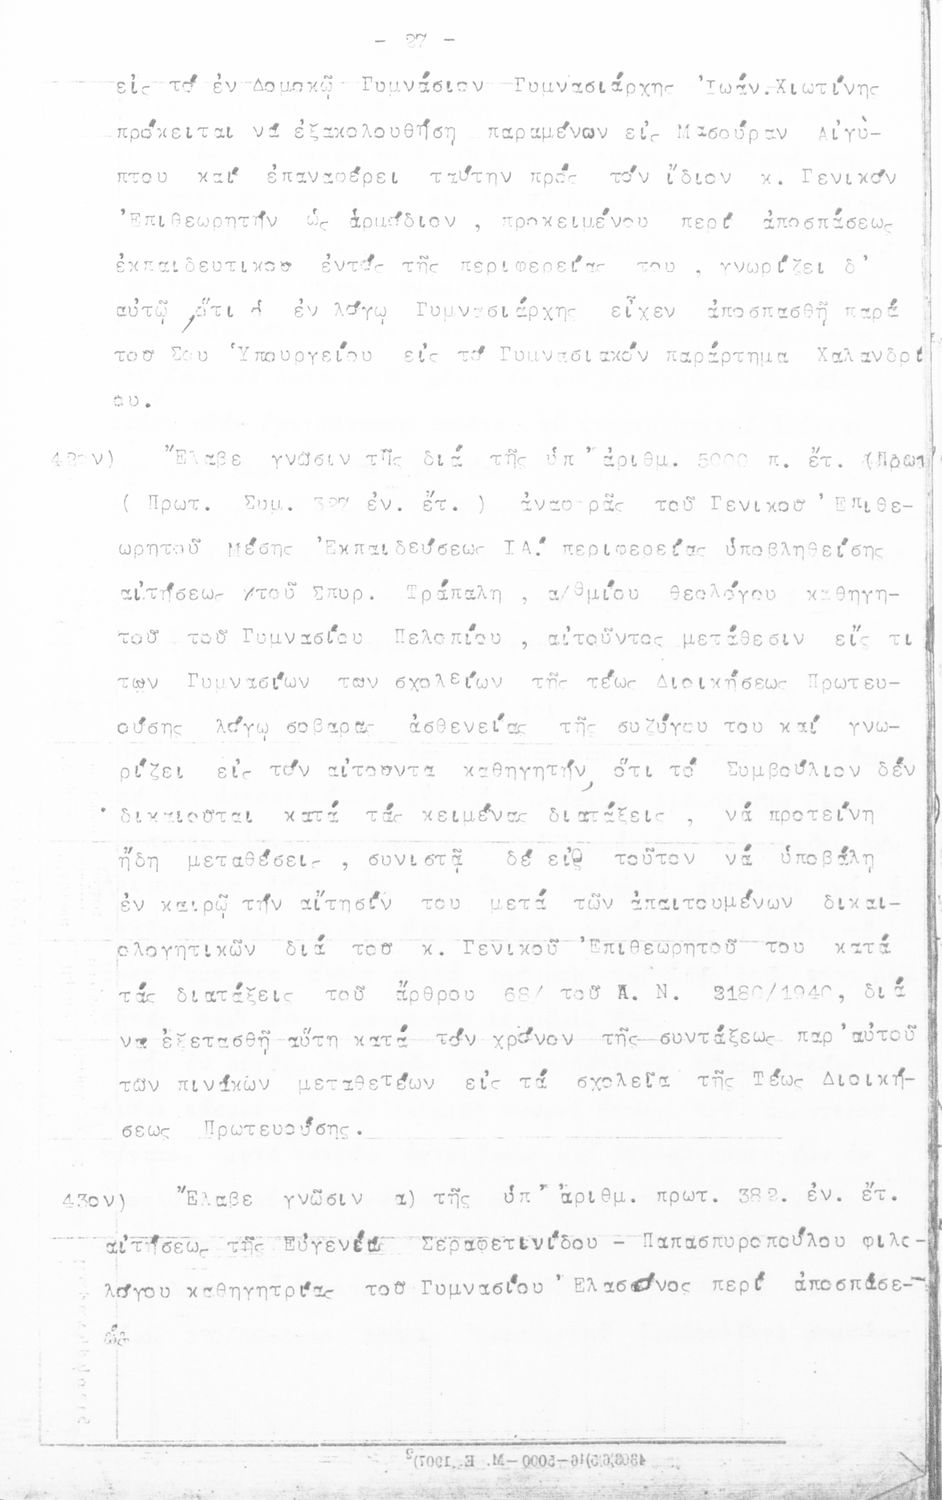 - 27 -
εἰς τό ἐν Δομοκῷ Γυμνάσιον Γυμνασιάρχης Ἰωάν. Χιωτίνης
πρόκειται νά ἐξακολουθήσῃ παραμένων εἰς Μασούραν Αἰγύ-
πτου καί ἐπαναφέρει ταύτην πρός τόν ἴδιον κ. Γενικόν
Ἐπιθεωρητήν ὡς ἁρμόδιον , προκειμένου περί ἀποσπάσεως
ἐκπαιδευτικοῦ ἐντός τῆς περιφερείας του , γνωρίζει δ'
αὐτῷ ,ὅτι ὁ ἐν λόγῳ Γυμνασιάρχης εἶχεν ἀποσπασθῆ παρά
τοῦ Σου Ὑπουργείου εἰς τό Γυμνασιακόν παράρτημα Χαλανδρί
ου.
42ον) Ἔλαβε γνῶσιν τῆς διά τῆς ὑπ' ἀριθμ. 5000 π. ἔτ. (Πρωτ
( Πρωτ. Συμ. 327 ἐν. ἔτ. ) ἀναφορᾶς τοῦ Γενικοῦ Ἐπιθε-
ωρητοῦ Μέσης Ἐκπαιδεύσεως ΙΑ! περιφερείας ὑποβληθείσης
αἰτήσεως τοῦ Σπυρ. Τράπαλη , α/θμίου θεολόγου καθηγη-
τοῦ τοῦ Γυμνασίου Πελοπίου , αἰτοῦντος μετάθεσιν εἴς τι
των Γυμνασίων των σχολείων τῆς τέως Διοικήσεως Πρωτευ-
ούσης λόγῳ σοβαρας ἀσθενείας τῆς συζύγου του καί γνω-
ρίζει εἰς τόν αἰτοῦντα καθηγητήν, ὅτι τό Συμβούλιον δέν
δικαιοῦται κατά τάς κειμένας διατάξεις , νά προτείνῃ
ἤδη μεταθέσεις , συνιστᾷ δέ εἰς τοῦτον νά ὑποβάλῃ
ἐν καιρῷ τήν αἴτησίν του μετά τῶν ἀπαιτουμένων δικαι-
ολογητικῶν διά τοῦ κ. Γενικοῦ Ἐπιθεωρητοῦ του κατά
τάς διατάξεις τοῦ ἄρθρου 68/ τοῦ Α. Ν. 2180/1940, διά
να ἐξετασθῆ αὕτη κατά τόν χρόνον τῆς συντάξεως παρ'αὐτοῦ
τῶν πινάκων μεταθετέων εἰς τά σχολεῖα τῆς Τέως Διοική-
σεως Πρωτευούσης.
43ον) Ἔλαβε γνῶσιν α) τῆς ὑπ' ἀριθμ. πρωτ. 382. ἐν. ἔτ.
αἰτήσεως τῆς Εὐγενία Σεραφετινίδου - Παπασπυροπούλου φιλο-
λόγου καθηγητρίας τοῦ Γυμνασίου Ἐλασσόνος περί ἀποσπάσε-
ώς